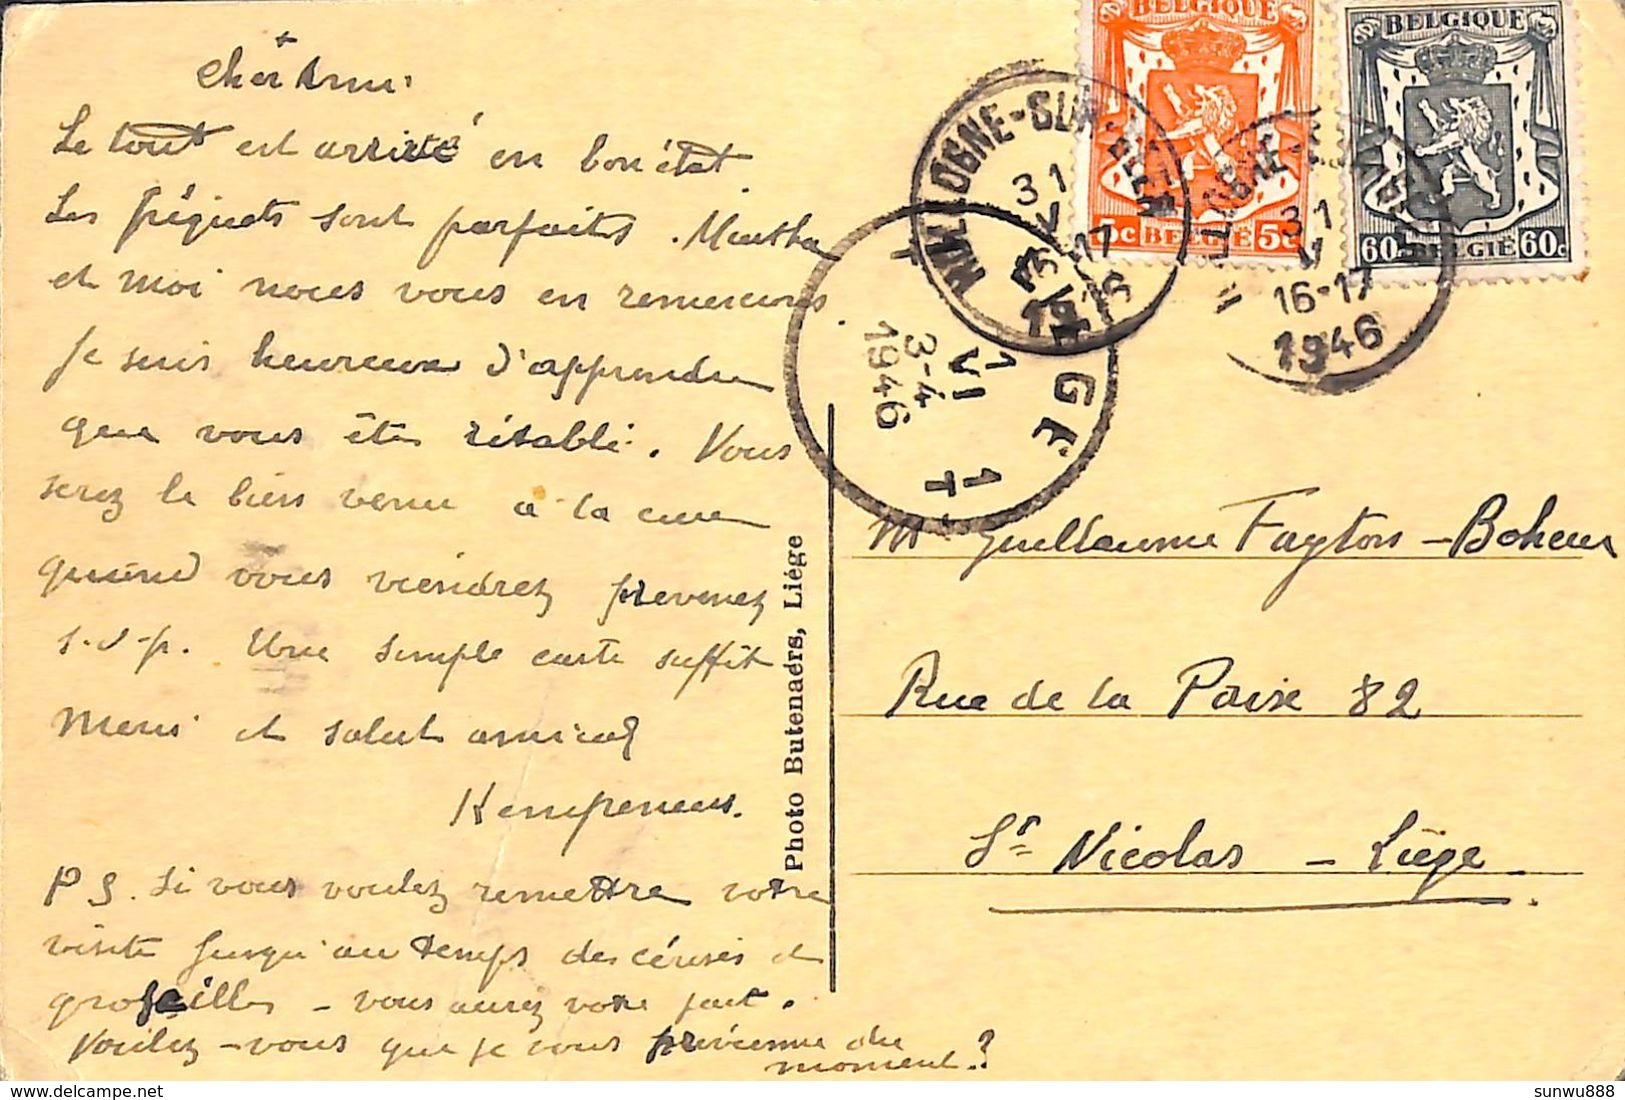 Cher Ami
Le tout est arrivé en bon état.
Les fréquets sont parfaits. Martha
et moi nous vous en remercions.
Je suis heureux d'apprendre
que vous êtes rétabli. Vous
serez le bien venu à la cure
quand vous viendrez prevenez
s.v.p. Une simple carte suffit
Merci et salut amical
Kempeneers.
P S. Si vous voulez remettre votre
visite jusqu'au temps des cérises et
groseilles - vous aurez votre part.
Voulez-vous que je vous prévienne du
moment?
Photo Butenaers, Liége
BELGIQUE
5c BELGIË 5c
BELGIQUE
60c BELGIË 60c
31
V
16-17
1946
31
V
16-17
1946
LIEGE 1
1
VI
3-4
1946
Mr Guillaume Faytons-Boheur
Rue de la Paix 82
St Nicolas - Liége
sunwu888